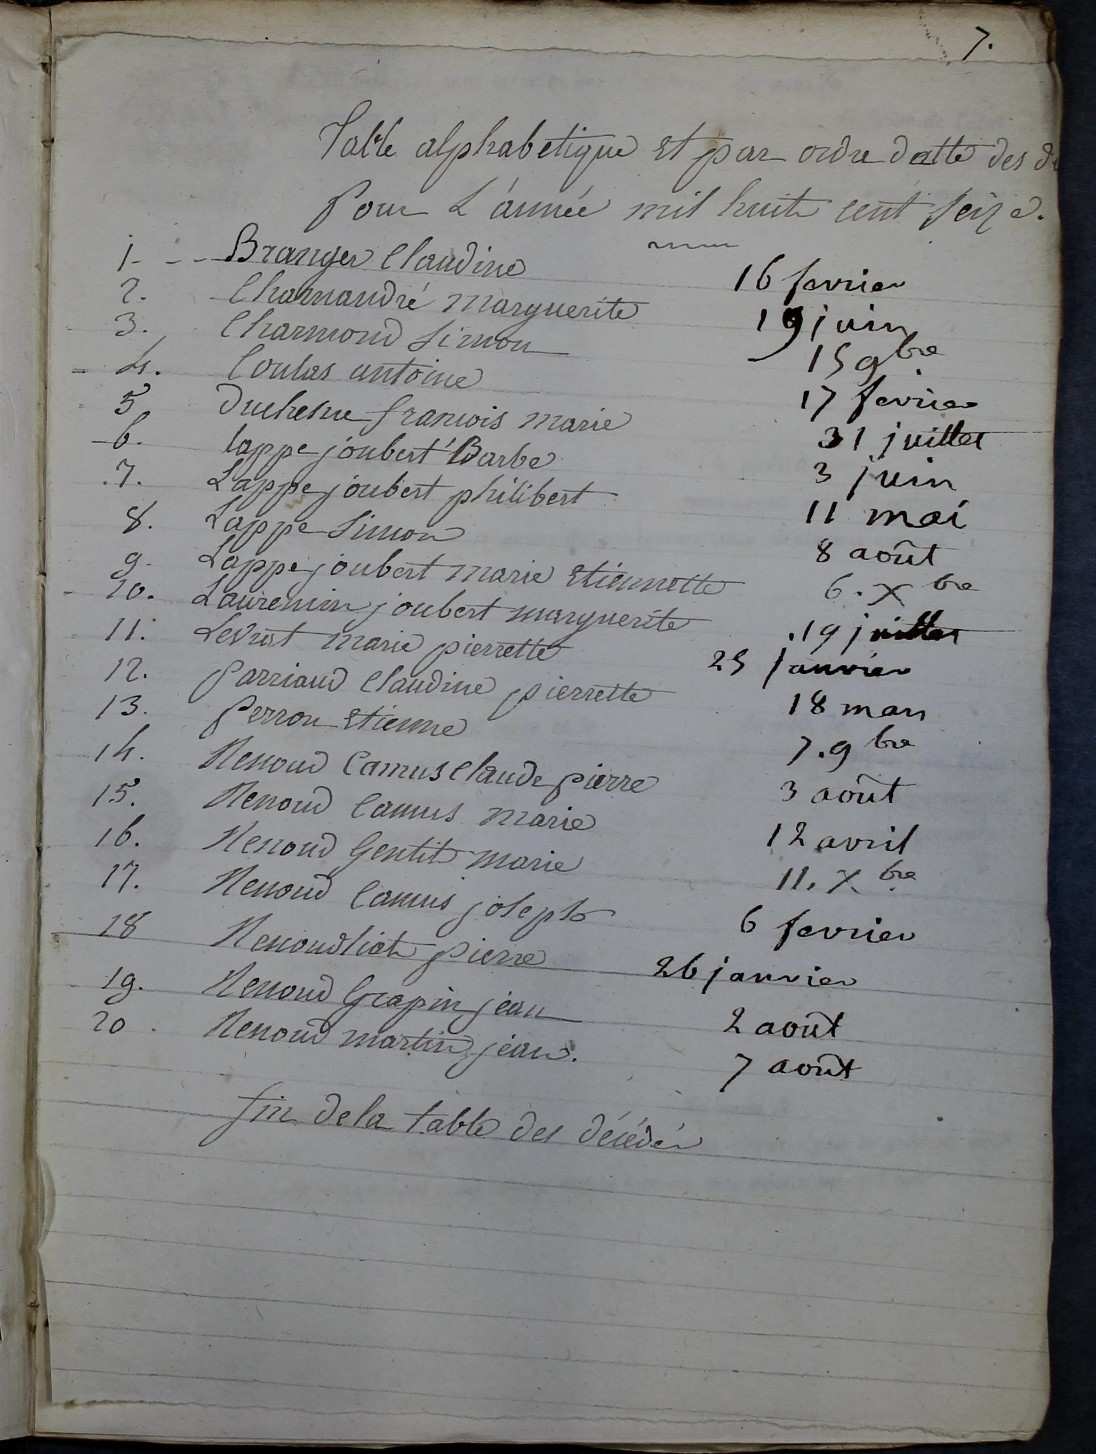 7.
Table alphabetique et par ordre datte des
pour L'année mil huit cent seize.
1. - - Branger Claudine 16 fevrier
2. Charnandré marguerite 19 juin
3. Charmond simon 15 9bre
4. Coulas antoine 17 fevrier
5. Duchesne francois marie 31 juillet
6. lappe joubert Barbe 3 juin
7. Lappe joubert philibert 11 mai
8. Lappe simon 8 août
9. Lappe joubert marie Etiennette 6. Xbre
10. Laurencin joubert marguerite 19 juillet
11. Levrat marie pierrette 25 janvier
12. parriaud Claudine pierrette 18 mars
13. perron Etienne 7. 9bre
14. Renoud Camus Claude pierre 3 août
15. Renoud Camus marie 12 avril
16. Renoud Gentit marie 11. Xbre
17. Renoud Camus joseph 6 fevrier
18 Renoudliat pierre 26 janvier
19. Renoud Grapin jean 2 août
20. Renoud martin jean. 7 août
fin de la table des décédés